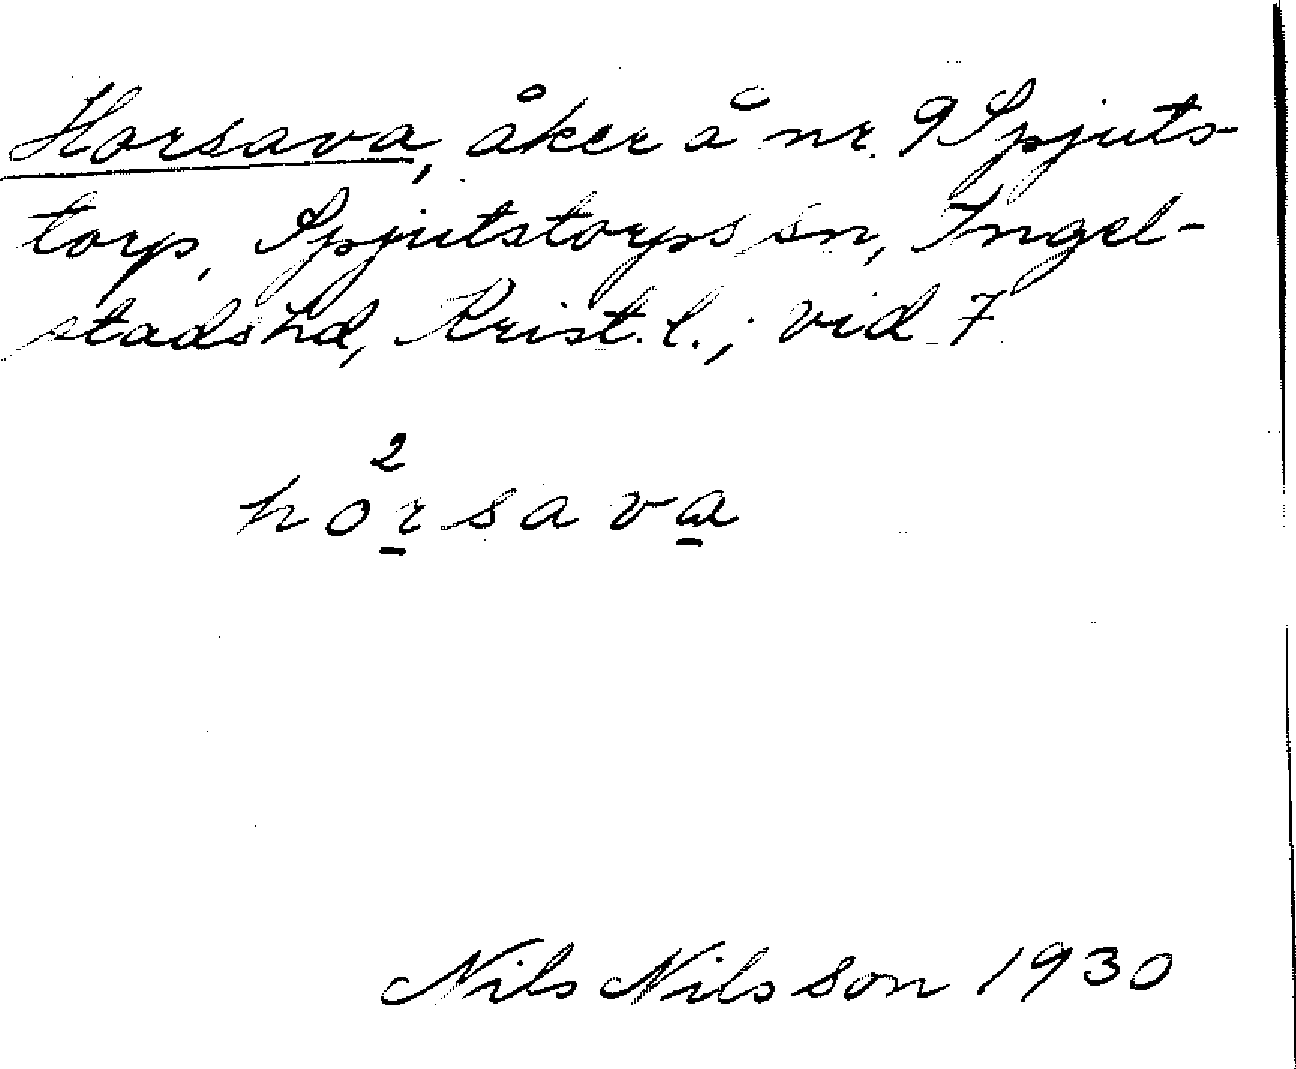 Horsava, åker å nr. 9 Spjuts-
torp, Spjutstorps sn, Ingel-
stads hd, Krist. l.; vid 7
2
horsava
Nils Nilsson 1930